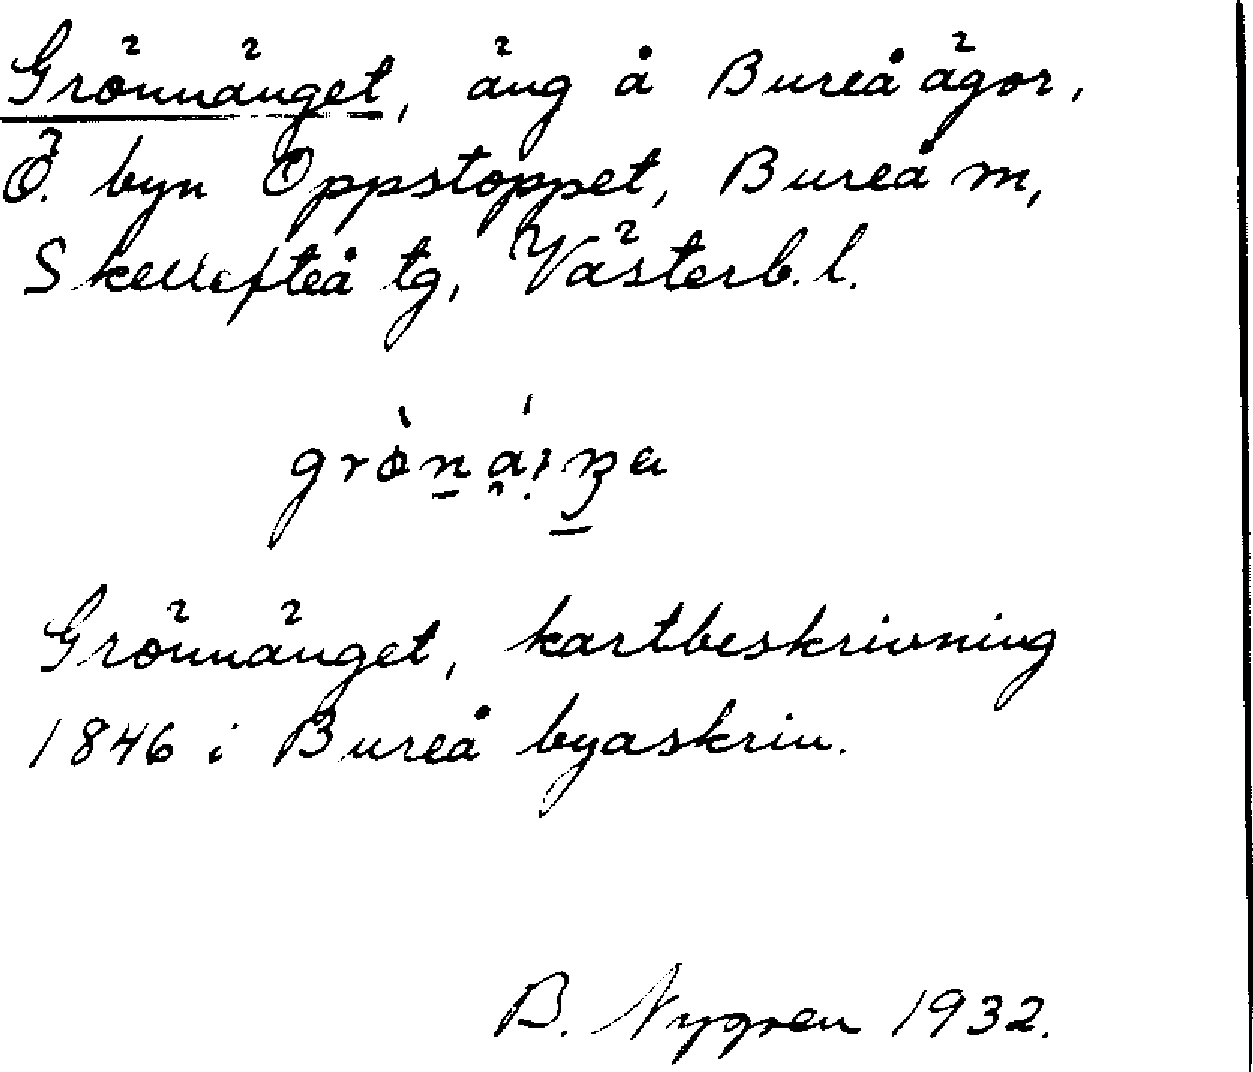 Grönnänget, äng å Bureå ägor,
Ö. byn Oppstoppet, Bureå m,
Skellefteå tg, Västerb. l.
Grönnänget, kartbeskrivning
1846 i Bureå byaskriv.
B. Nygren 1932.